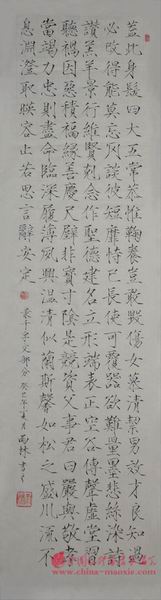 蓋此身髮四大五常恭惟鞠養豈敢毀傷女慕清潔男效才良知過
必改得能莫忘罔談彼短靡恃己長信使可覆器欲難量墨悲絲染詩
讚羔羊景行維賢剋念作聖德建名立形端表正空谷傳聲虛堂習
聽禍因惡積福緣善慶尺璧非寶寸陰是競資父事君曰嚴與敬孝
當竭力忠則盡命臨深履薄夙興溫凊似蘭斯馨如松之盛川流不
息淵澄取暎容止若思言辭安定
千字文部分 癸巳年 月 雨林
www.china-maoxie.com